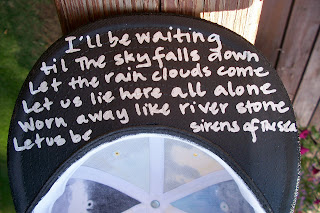 I'll be waiting
til The sky falls down
Let the rain clouds come
Let us lie here all alone
Worn away like river stone
Let us be sirens of The sea